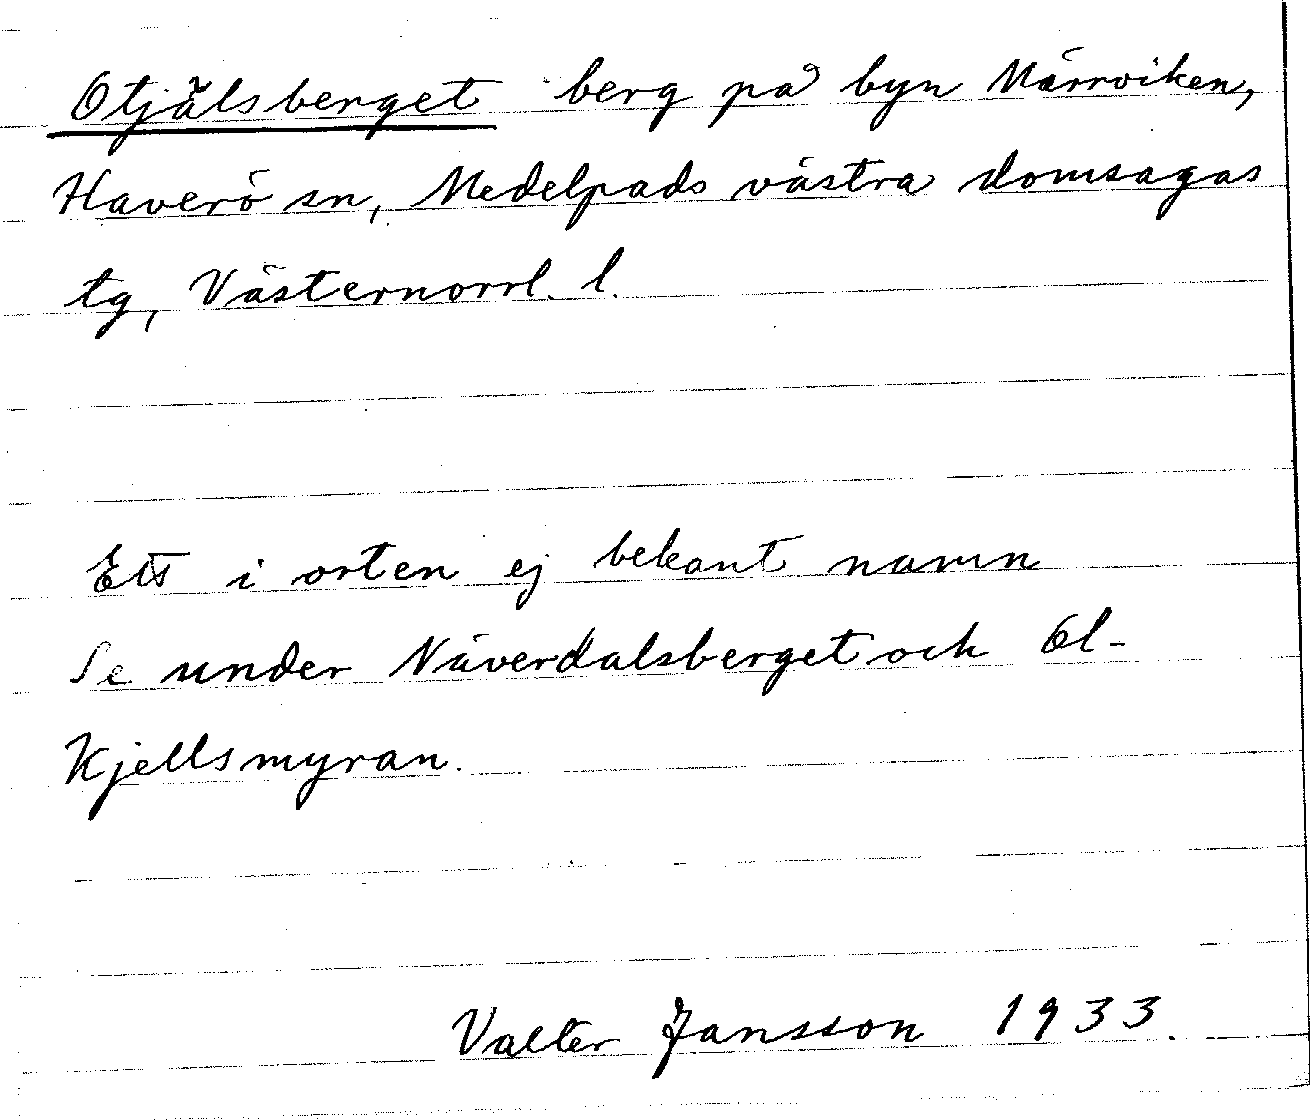 Otjälsberget berg på byn Märrviken,
Haverö sn, Medelpads västra domsagas
tg, Västernorrl. l.
Ett i orten ej bekant namn
Se under Näverdalsberget och Ol-
Kjellsmyran.
Valter Jansson 1933.